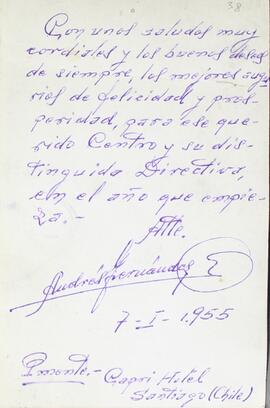 38
Con unos saludos muy
cordiales y los buenos deseos
de siempre, los mejores augu-
rios de felicidad y pros-
peridad, para ese que-
rido Centro y su dis-
tinguida Directiva,
en el año que empie-
za.-
Atte.
Andrés Fernández
7-I-1.955
Pmente.- Capri Hotel
Santiago (Chile)